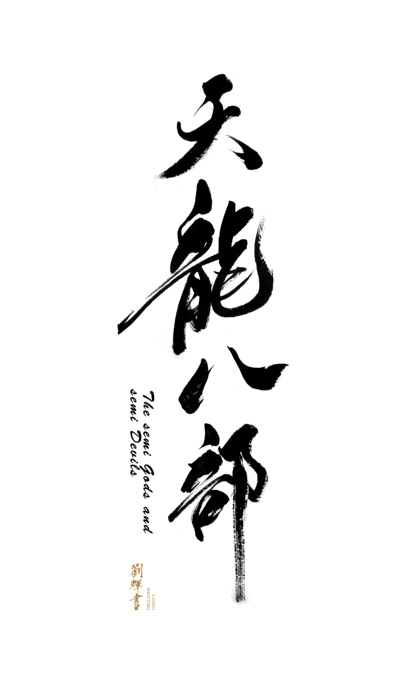 天龍八部
The semi Gods and
semi Devils
劉輝書